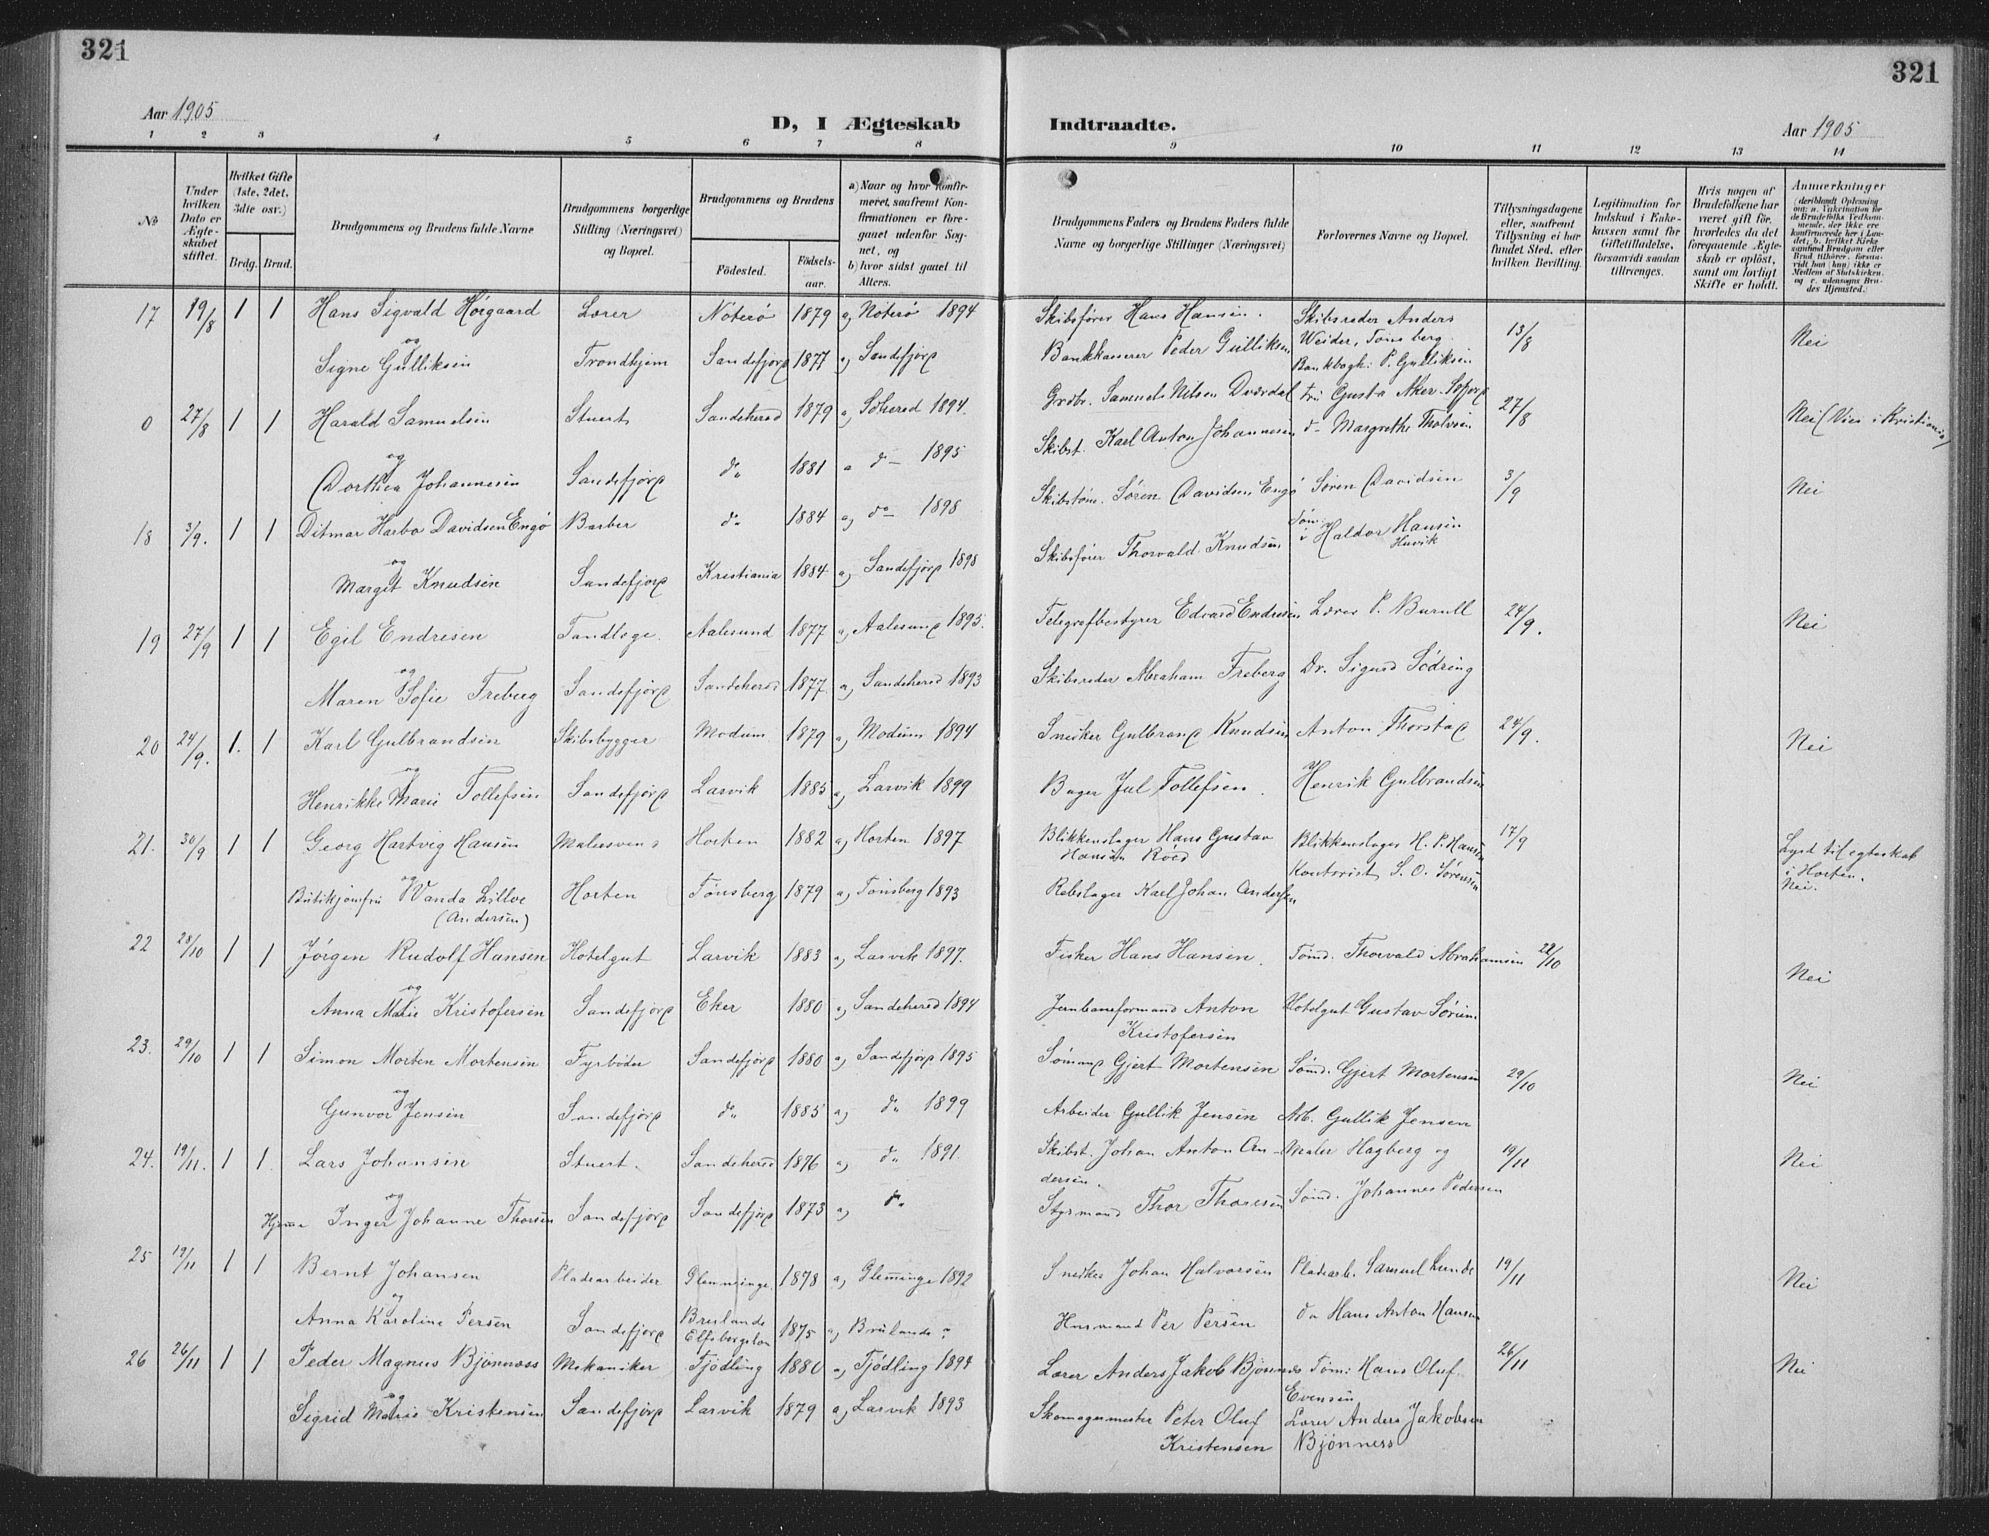 321
321
Aar 1905
D, I Ægteskab Indtraadte.
Aar 1905
1 2 3 4 5 6 7 8 9 10 11 12 13 14
No
Under hvilken Dato er Ægteskabet stiftet.
Hvilket Gifte (1ste, 2det, 3die osv.)
Brdg. Brud.
Brudgommens og Brudens fulde Navne
Brudgommens borgerlige Stilling (Næringsvei) og Bopæl.
Brudgommens og Brudens
Födested.
Födsels-aar.
a) Naar og hvor konfirmeret, saafremt Konfirmationen er foregaaet udenfor Sognet, og
b) hvor sidst gaaet til Alters.
Brudgommens Faders og Brudens Faders fulde Navne og borgerlige Stillinger (Næringsvei)
Forlovernes Navne og Bopæl.
Tillysningsdagene eller, saafremt Tillysning ei har fundet Sted, efter hvilken Bevilling.
Legitimation for Indskud i Enkekassen samt for Giftetilladelse, forsaavidt saadan tiltrænges.
Hvis nogen af Brudefolkene har været gift før, hvorledes da det foregaaende Ægteskab er opløst, samt om lovligt Skifte er holdt.
Anmerkninger
17 19/8 1 1 Hans Sigvald Hørgaard Lærer Nøterø 1879 a) Nøterø 1894 Skibsfører Hans Hansen. Skibsreder Anders Weider, Tønsberg 13/8 Nei
og
Signe Gulliksen Trondhjem Sandefjord 1877 a) Sandefjord Bankkasserer Peder Gulliksen Bankbogh: P. Gulliksen
0 27/8 1 1 Harald Samuelsen Stuert Sandeherred 1879 a) Sdherred 1894. Grdbr. Samuel Nilsen Gusta Aker 27/8 Nei (Viet i Kristiania)
og
Dorthea Johannesen Sandefjord do 1881 a do 1895 Skibst. Karl Anton Johannesen do Margrethe
18 3/9. 1 1 Ditmar Harbo Davidsen Engø Barber do 1884 a) do 1898 Skibstøm. Søren Davidsen Engø Søren Davidsen 3/9 Nei
og
Margit Knudsen Sandefjord Kristiania 1884 a) Sandefjord 1898 Skibsfører Thorvald Knudsen Haldor Hansen
19 27/9 1 1 Egil Endresen Tandlæge. Aalesund 1877 a) Aalesund 1895. Telegrafbestyrer Edvard Endresen Lærer P. Burull 24/9. Nei
og
Maren Sofie Freberg Sandefjord Sandeherred 1877 a) Sandeherred 1893 Skibsreder Abraham Freberg Dr. Sigurd Sødring
20 24/9. 1. 1 Karl Gulbrandsen Skibsbygger Modum 1879 a) Modum 1894 Snedker Gulbrand Knudsen Anton Thorstad 24/9. Nei
og
Henrikke Marie Tollefsen Sandefjord Larvik 1885 a) Larvik 1899 Bager Jul Tollefsen. Henrik Gulbrandsen
21. 30/9 1 1 Georg Hartvig Hansen Malersvend Horten 1882 a) Horten 1897 Blikkenslager Hans Gustav Hansen Røed Blikkenslager H. P. Hansen 17/9 Lyst til egteskab i Horten. Nei.
og
Butikjomfru Wanda Lilloe (Andersen) Horten Tønsberg 1879 a) Tønsberg 1893 Rebslager Karl Johan Andersen Kontorist S. O. Sørensen
22 28/10 1 1 Jørgen Rudolf Hansen Hotelgut Larvik 1883 a) Larvik 1897. Fisker Hans Hansen. Tømd. Thorvald Abrahamsen 22/10 Nei
og
Anna Marie Kristofersen Sandefjord Eker 1880 a) Sandeherred 1894 Jernbaneformand Anton Kristofersen Hotelgut Gustav
23. 29/10 1 1 Simon Morten Mortensen Fyrbøder Sandefjord 1880 a) Sandefjord 1895 Sømand Gjert Mortensen Sømd. Gjert Mortensen 29/10 Nei
og
Gunvor Jensen Sandefjord do 1885 a) do 1899 Arbeider Gullik Jensen Arb. Gullik Jensen
24. 19/11. 1 1. Lars Johansen Stuert. Sandeherred 1876 a) do 1891. Skibst. Johan Anton Andersen. Maler Hagberg og 19/11 Nei
og
Hjemme Inger Johanne Thorsen Sandefjord Sandefjord 1873 a) do Styrmand Thor Thoresen Sømd. Johannes Pedersen
25 19/11 1 1 Bernt Johansen Pladearbeider Glemminge 1878 a) Glemminge 1892 Snedker Johan Halvorsen Pladearb. Samuel Lunde 19/11 Nei
og
Anna Karoline Persen Sandefjord 1875 a) Husmand Per Persen do Hans Anton Hansen
26 26/11 1 1 Peder Magnus Bjønness Mekaniker Tjødling 1880 a) Tjødling 1894 Lærer Anders Jakob Bjønness Tøm: Hans Oluf Evensen 26/11 Nei
og
Sigrid Marie Kristensen Sandefjord Larvik 1879 a) Larvik 1893 Skomagermester Peter Oluf Kristensen Lærer Anders Jakobsen Bjønness